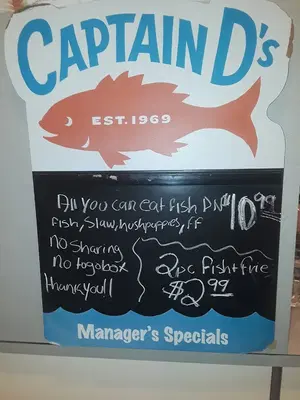 CAPTAIN D's
EST. 1969
All you can eat fish DN $10.99
fish, slaw, hushpuppies, ff
no sharing
no togobox
thank you!!
2pc fish+frie
$2.99
Manager's Specials